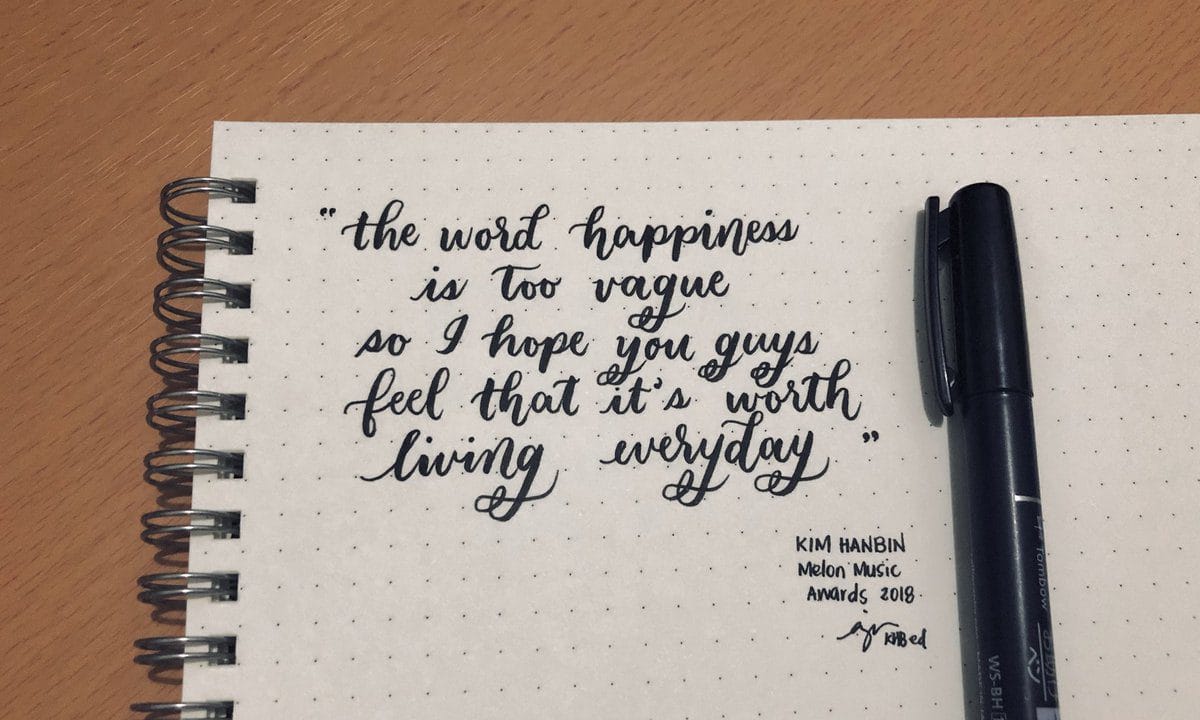 "the word happiness
is too vague
so I hope you guys
feel that it's worth
living everyday"
KIM HANBIN
Melon Music
Awards 2018
KHB ed
Tombow
WS-BH